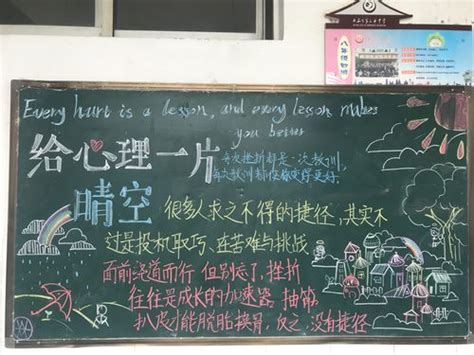 Every hurt is a lesson, and every lesson makes
you better
给心理一片
晴空
每次挫折都是一次教训,
每次教训都使你变得更好.
很多人求之不得的捷径,其实不
过是投机取巧,在苦难与挑战
面前绕道而行 但别忘了,挫折
往往是成长的加速器,抽筋
扒皮才能脱胎换骨,反之,没有捷径
八年级